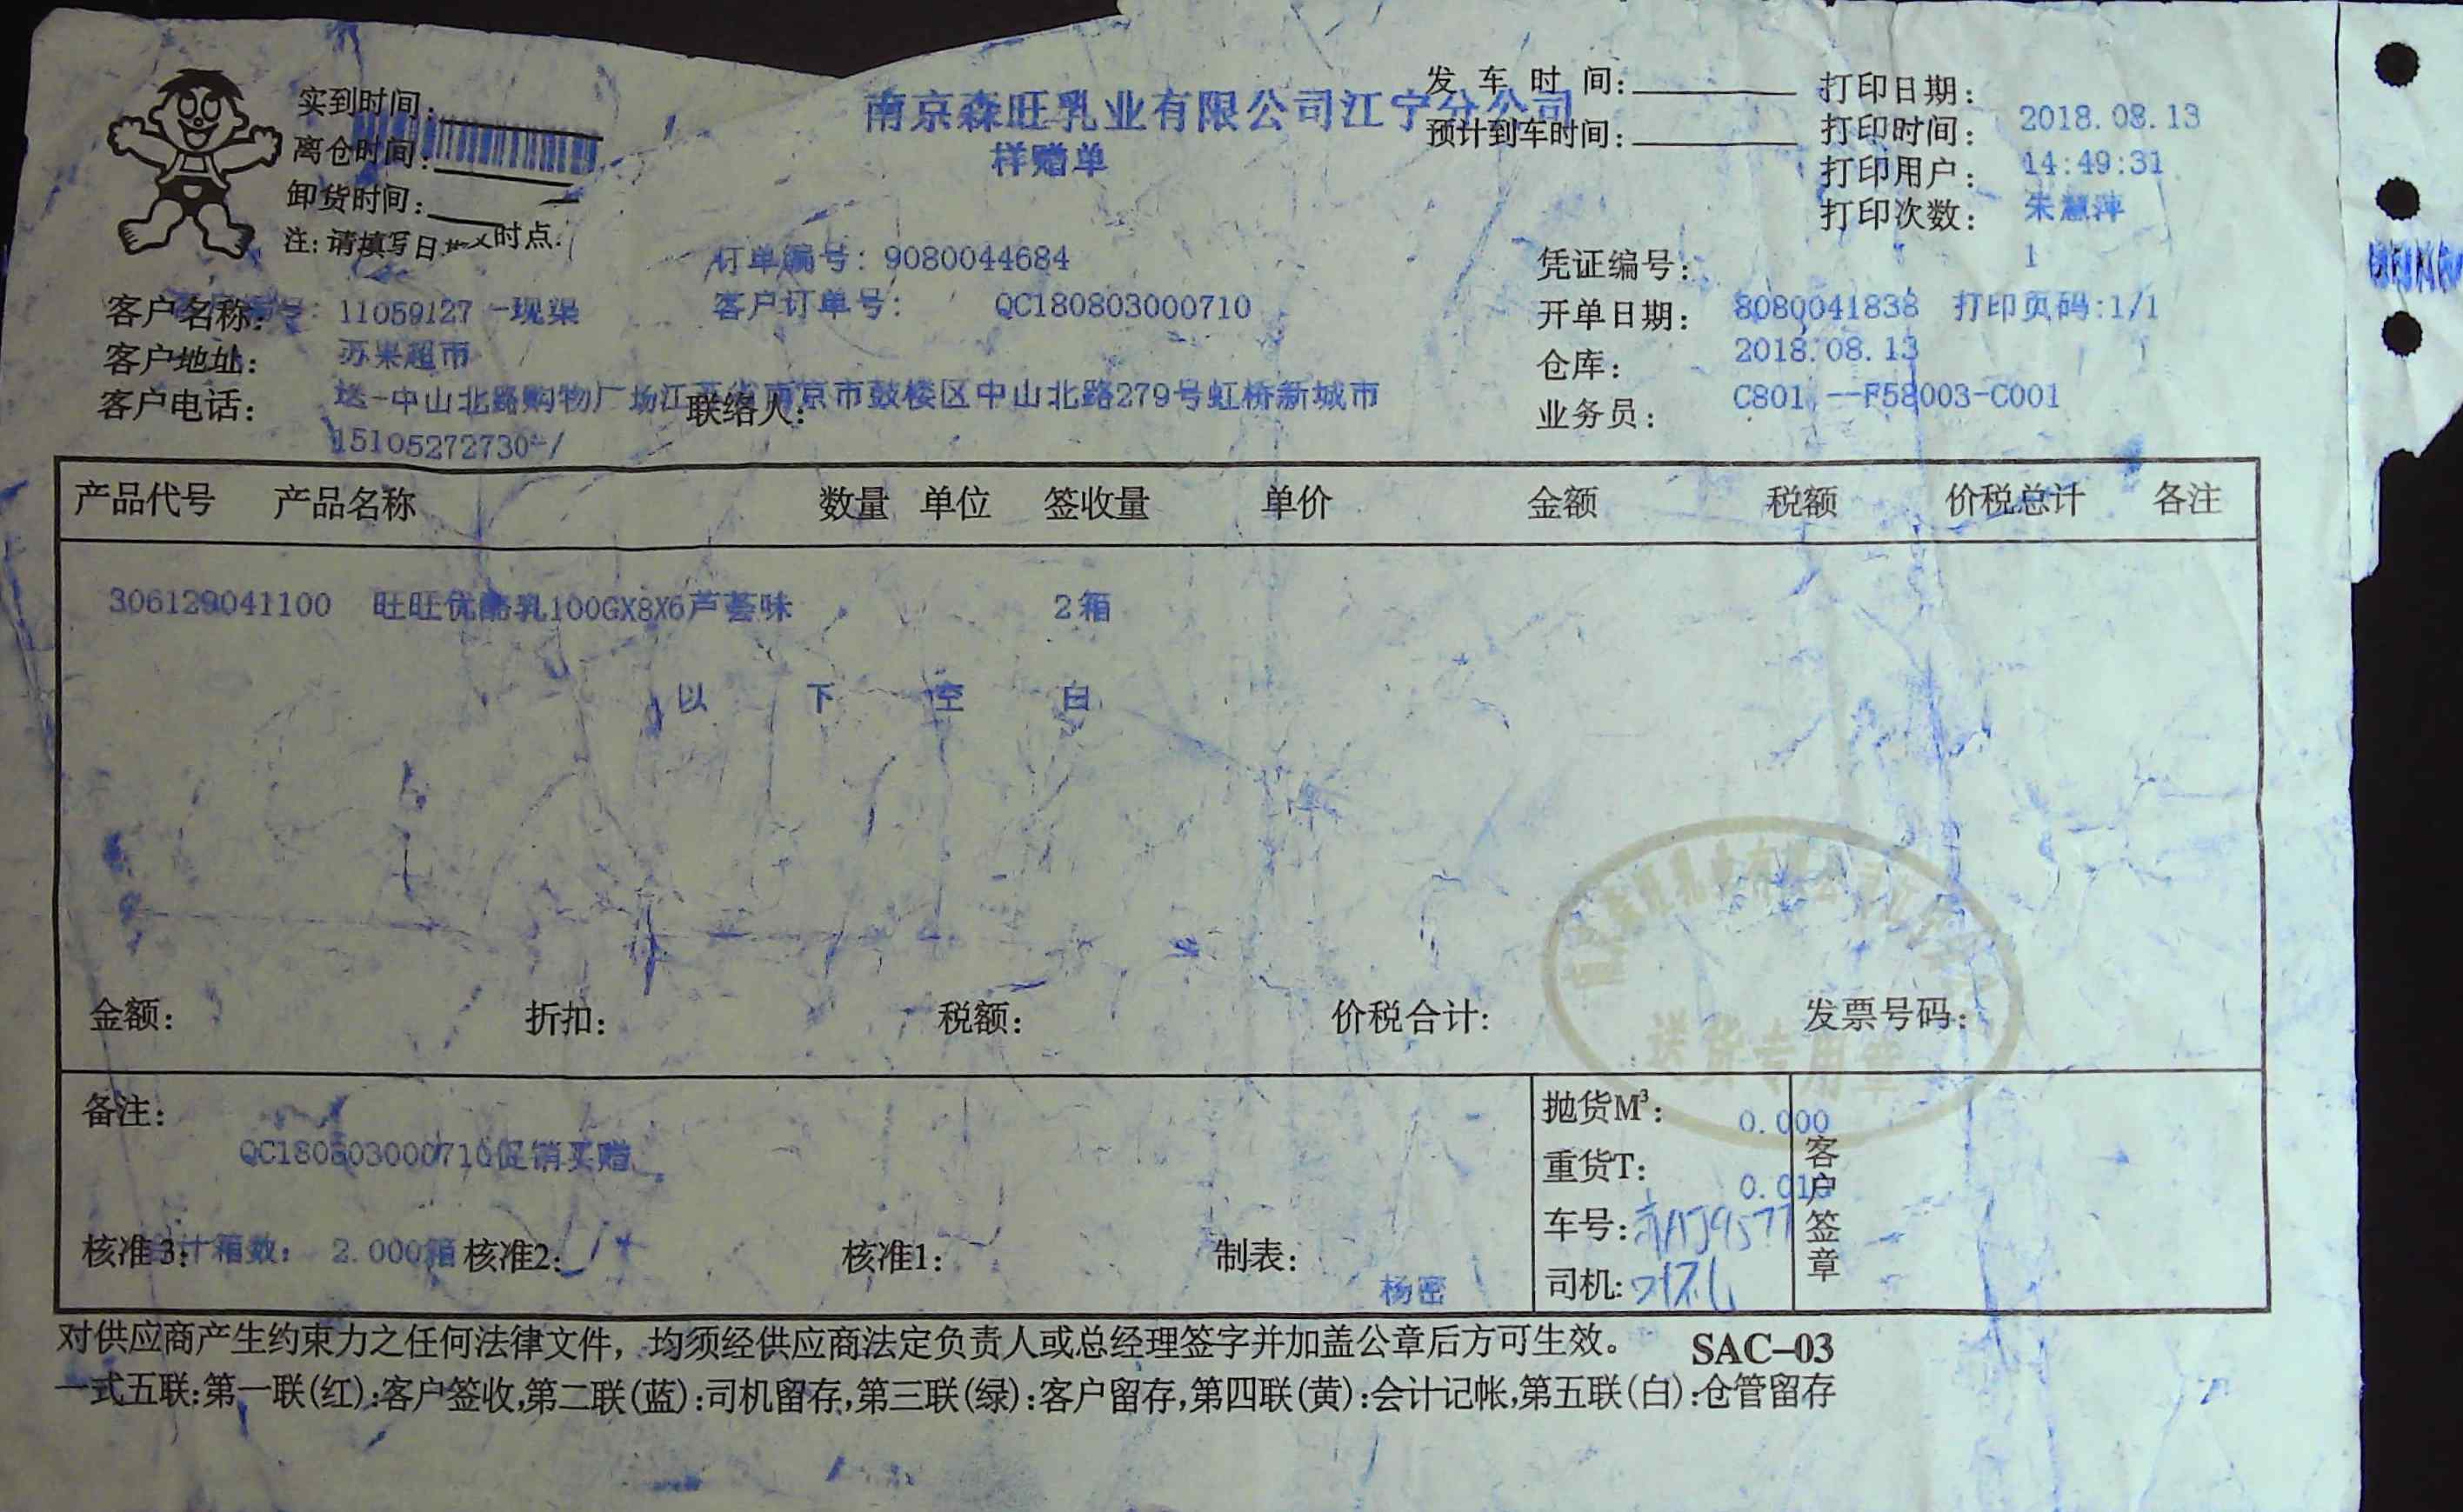 实到时间:
离仓时间:
卸货时间:
注:请填写日 时点.
南京森旺乳业有限公司江宁分公司
样赠单
发车时间:
预计到车时间:
打印日期: 2018.08.13
打印时间: 14:49:31
打印用户: 朱慧萍
打印次数: 1
订单编号: 9080044684
客户订单号: QC180803000710
凭证编号: 8080041838 打印页码:1/1
开单日期: 2018.08.13
仓库: C801 --F58003-C001
业务员:
客户名称: 11059127 -现渠
苏果超市
客户地址: 送-中山北路购物广场江苏省南京市鼓楼区中山北路279号虹桥新城市
客户电话: 15105272730-/
联络人:
产品代号 产品名称 数量 单位 签收量 单价 金额 税额 价税总计 各注
306129041100 旺旺优酪乳100GX8X6芦荟味 2箱
以 下 空 白
金额: 折扣: 税额: 价税合计: 发票号码:
送货专用章
备注:
QC180803000710促销买赠
合计箱数: 2.000箱
核准3: 核准2: 核准1: 制表: 杨密
抛货M³: 0.000
重货T: 0.01
车号:
司机:
客户签章
对供应商产生约束力之任何法律文件，均须经供应商法定负责人或总经理签字并加盖公章后方可生效。 SAC-03
一式五联:第一联(红):客户签收,第二联(蓝):司机留存,第三联(绿):客户留存,第四联(黄):会计记帐,第五联(白):仓管留存